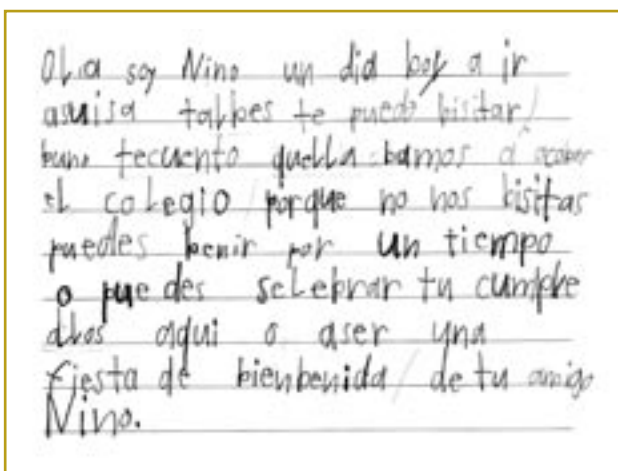 Ola soy Nino un dia boy a ir
asuisa talbes te puedo bisitar/
buno tecuento quella bamos a acabar
el colegio/porque no nos bisitas
puedes benir por un tiempo
o puedes selebrar tu cumple
allos aqui o aser una
fiesta de bienbenida/de tu amigo
Nino.